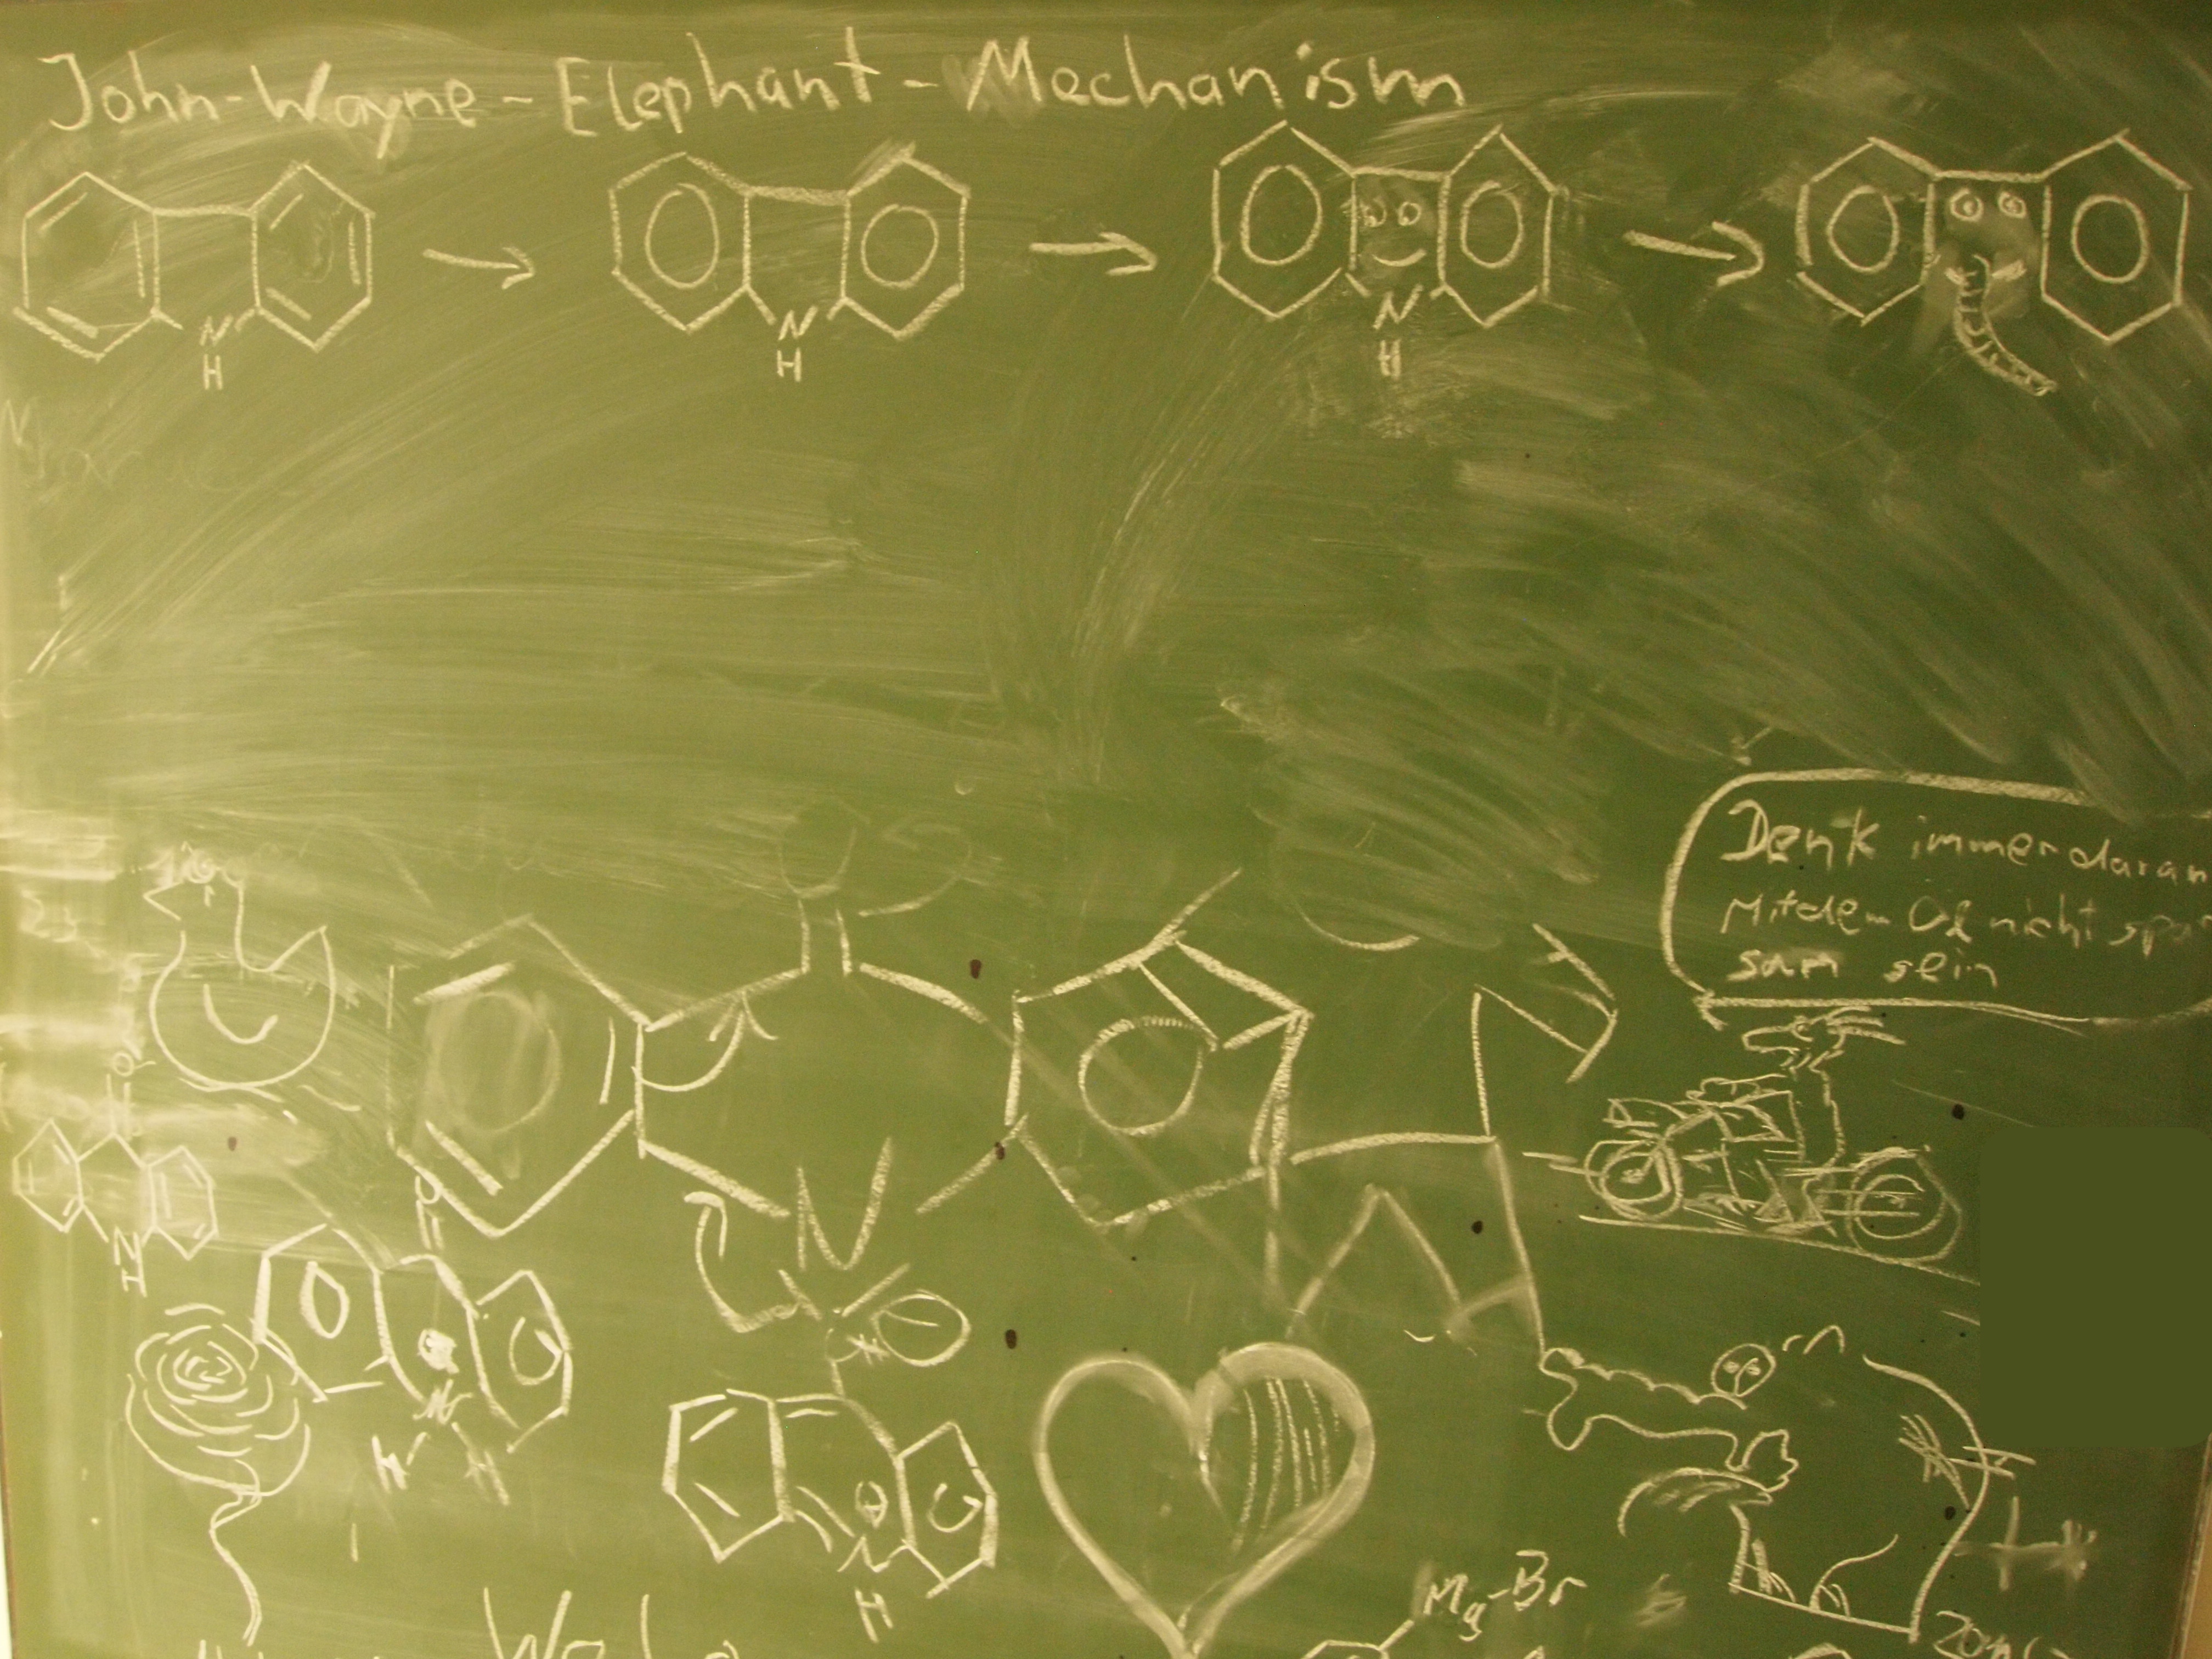 John-Wayne-Elephant-Mechanism
N
H
N
H
N
H
Denk immer daran
Mit dem Öl nicht spar
sam sein
N
H
N
N
H
H
N
H
Mg-Br